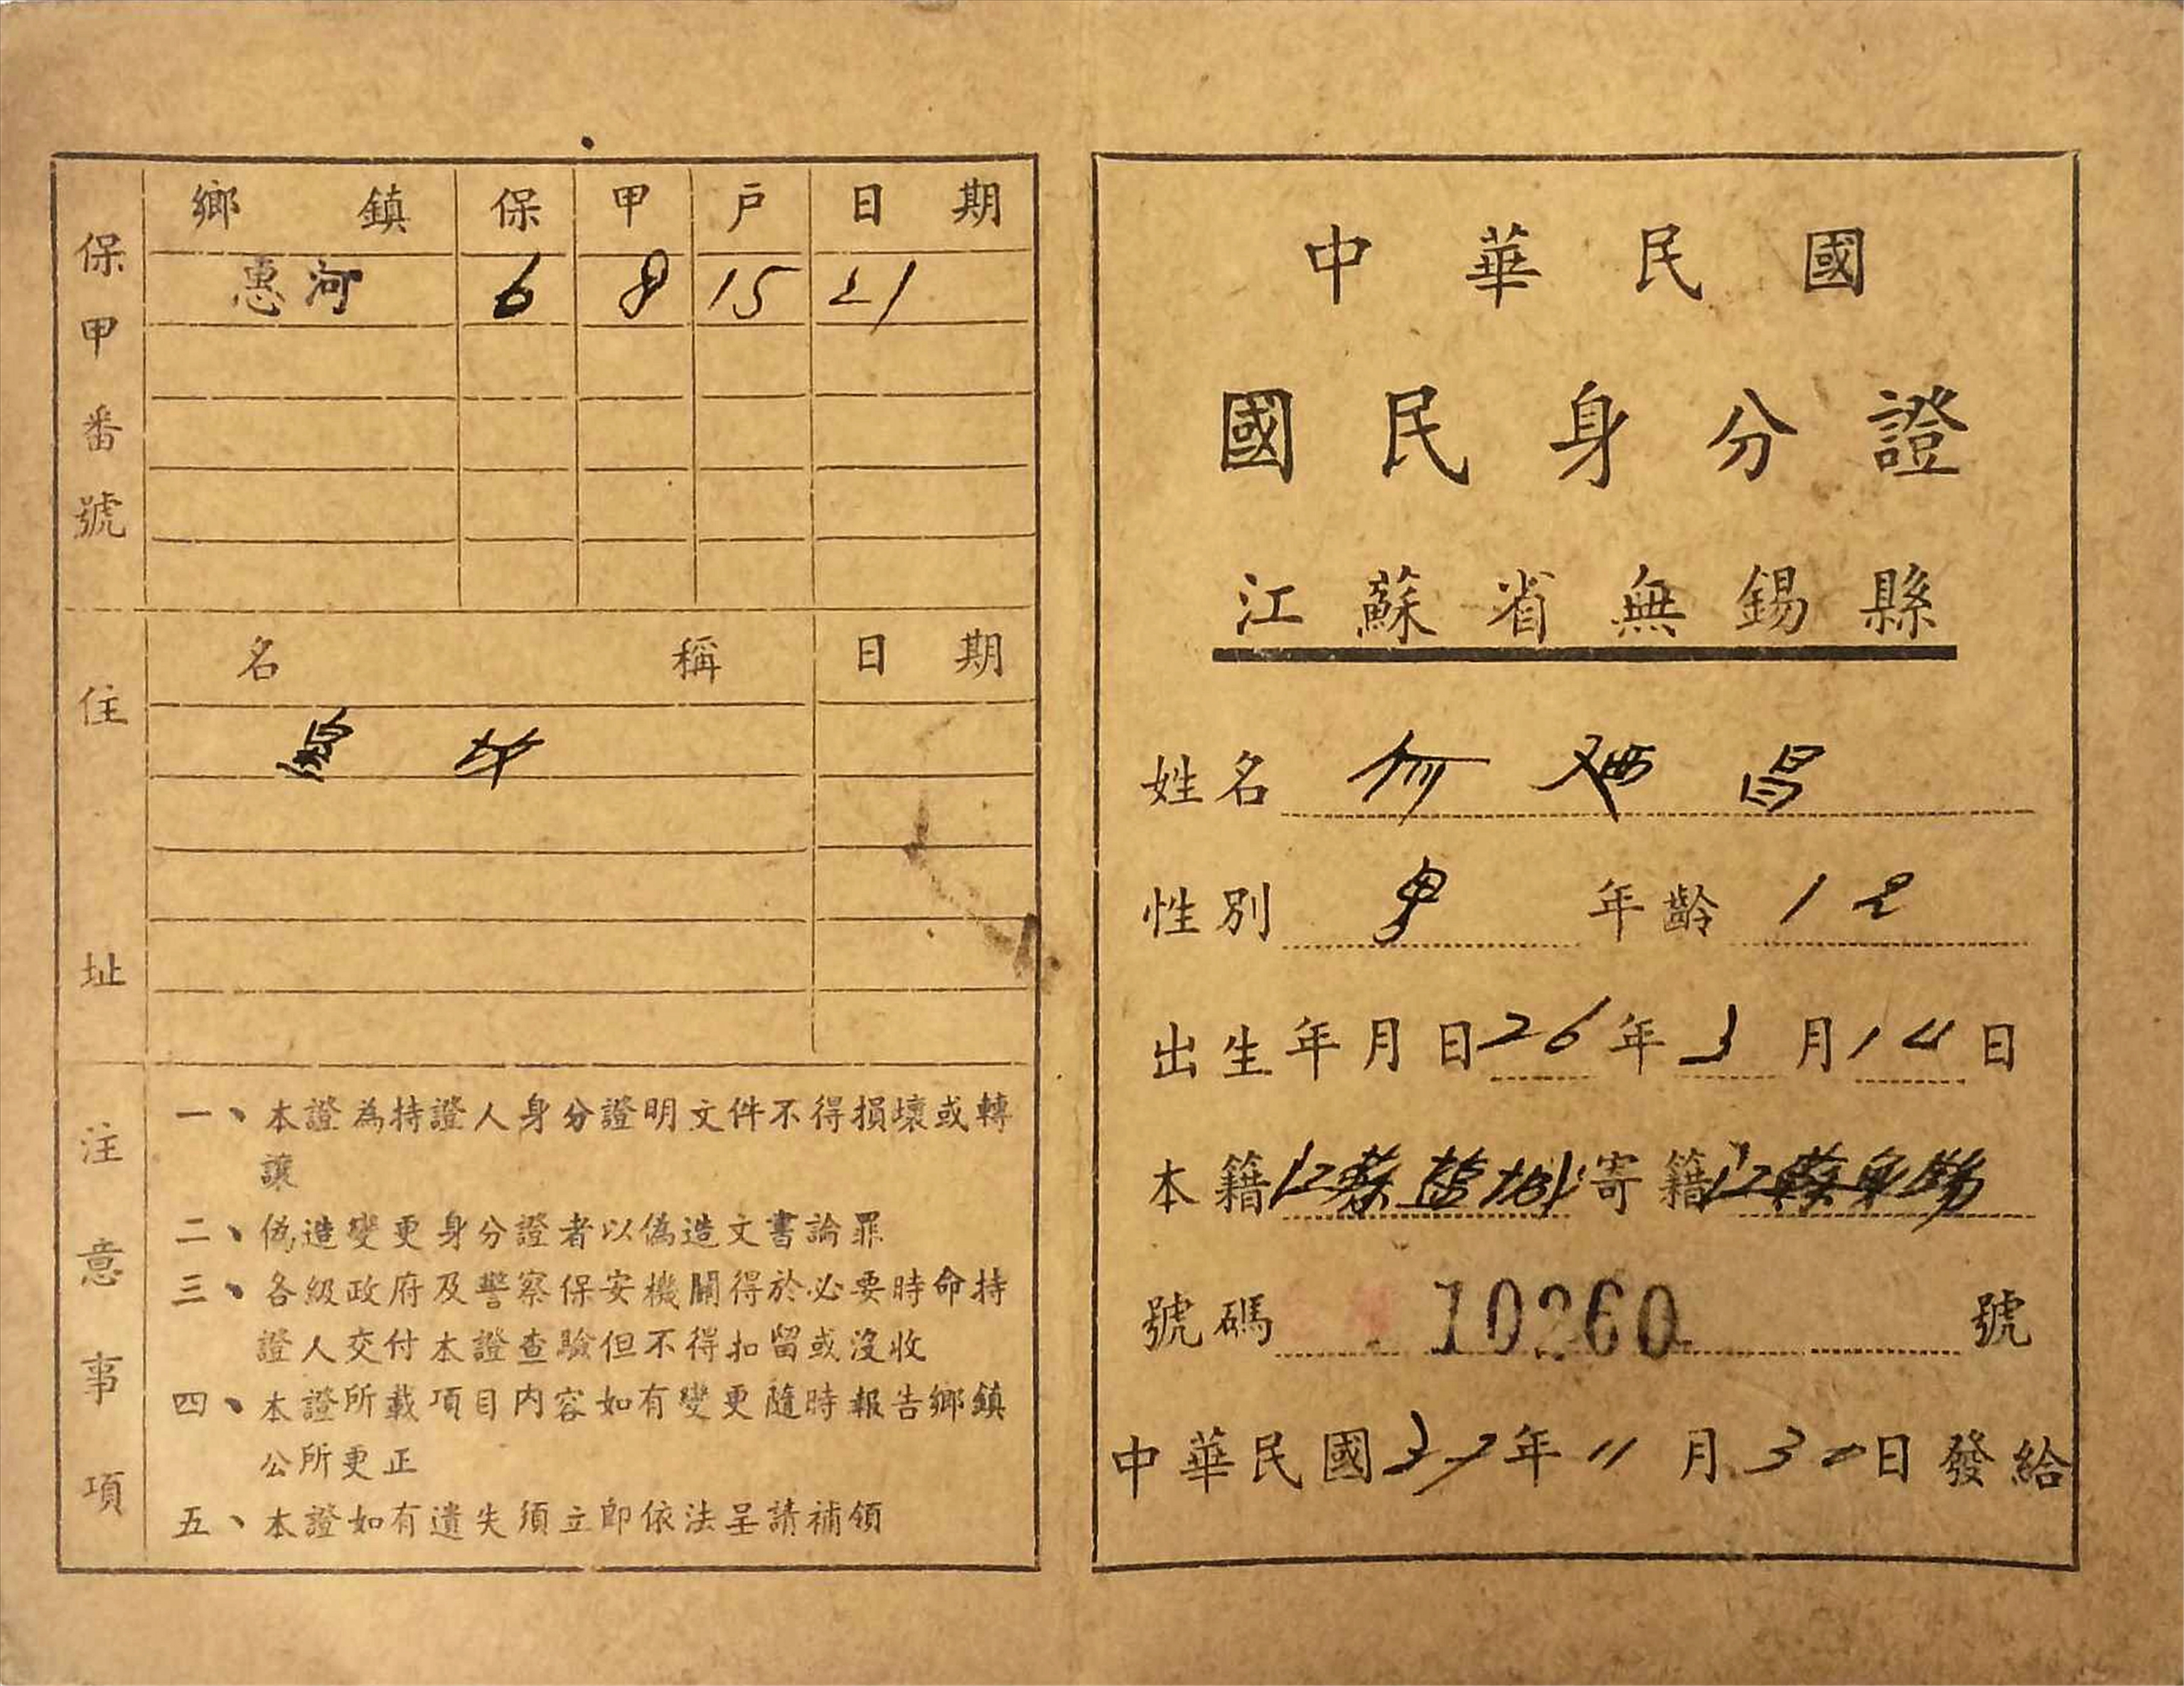 中華民國
國民身分證
江蘇省無錫縣
姓名 昌
性別 男 年齡 12
出生年月日26年3月14日
本籍江蘇鹽城寄籍江蘇無錫
號碼 10260 號
中華民國37年11月30日發給
保甲番號
鄉鎮 保 甲 戶 日期
惠河 6 8 15 21
住址
名稱 日期
注意事項
一、本證為持證人身分證明文件不得損壞或轉
讓
二、偽造變更身分證者以偽造文書論罪
三、各級政府及警察保安機關得於必要時命持
證人交付本證查驗但不得扣留或沒收
四、本證所載項目內容如有變更隨時報告鄉鎮
公所更正
五、本證如有遺失須立即依法呈請補領